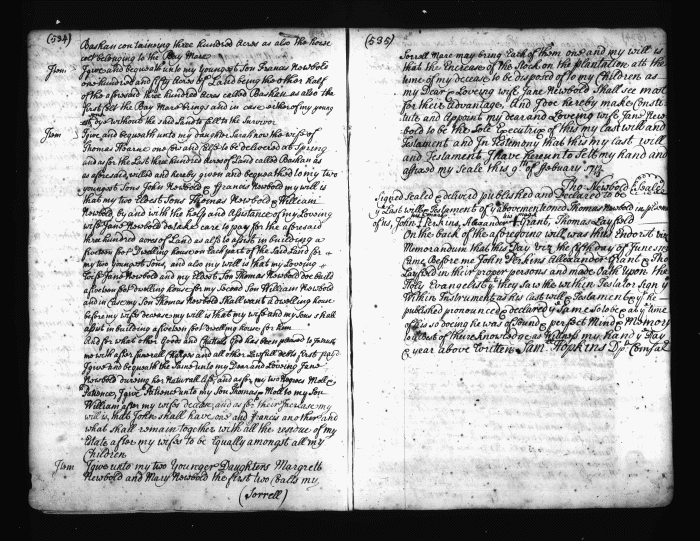 (534)
Bashan containing three hundred Acres as also the horse
colt belonging to the Bay Mare
Item I give and bequeath unto my youngest Son Francis Newbold
one hundred and fifty Acres of Land being the other half
of the aforesaid three hundred Acres called Bashan as also the
first Colt the Bay Mare brings and in case either of my young
sons dye without the said Land to fall to the Survivor
Item I give and bequeath unto my daughter Sarah now the wife of
Thomas Hearne one bed and to be delivered at Spring
and as for the Last three hundred Acres of Land called Bashan as
as aforesaid willed and hereby given and bequeathed to my two
youngest Sons John Newbold & Francis Newbold my will is
that my two Eldest Sons Thomas Newbold & William
Newbold by and with the help and Assistance of my Loveing
wife Jane Newbold do take care to pay for the aforesaid
three hundred acres of Land as also assist in building a
fifteen foot Dwelling house on Each part of the said Land for
my two youngest Sons, and also my will is that my Loveing
wife Jane Newbold and my Eldest Son Thomas Newbold doe build
a fifteen foot dwelling house for my Second Son William Newbold
and in Case my Son Thomas Newbold Shall want a dwelling house
before my wifes decease my will is that my wife and my Sons shall
assist in building a fifteen foot dwelling house for him
And for what other Goods and Chattels God has been pleased to
me with after funerall Charges and all other Lawfull debts first paid
I give and bequeath the Same unto my Dear and Loveing Jane
Newbold dureing her Naturall life, and as for my two Negroes Moll &
Patience, I give Patience unto my Son Thomas & Moll to my Son
William after my wifes decease, and as for their Increase my
will is, that John shall have one and Francis another and
what shall remain together with all the residue of my
Estate after my wife to be Equally amongst all my
Children
Item I give unto my two Younger Daughters Margrett
Newbold and Mary Newbold the first two Colts my
(Sorrell)
(535)
Sorrell Mare may bring Each of them one and my will is
that the Increase of the Stock on the plantation att the
time of my decease to be disposed of to my Children as
my Dear & Loveing wife Jane Newbold Shall see most
for their Advantage, And I doe hereby make Consti
tute and Appoint my dear and Loveing wife Jane New
bold to be the Sole Executrix of this my Last will and
Testament and In Testimony that this my Last will
and Testament I have hereunto Sett my hand and
affixed my Seale this 9th of February 1712
Tho: Newbold (Seale)
Signed Sealed & delivered published and Declared to be
y Last will & Testament of y abovementioned Thomas Newbold in presence
of us, John Perkins, Alexander Grant, Thomas Layfeld
On the back of the aforegoing will was thus Endorst viz
Memorandum that this Day viz the fifth day of June 1713
Came Before me John Perkins Alexander Grant & Tho
Layfeild in their proper persons and made Oath upon the
Holy Evangelist y they Saw the within Testator Sign y
Within Instrument as his Last will & Testament & y he
published pronounced & declared y Same So to be & at y time
of his so doing he was of Sound & perfect Mind & Memory
to y best of there knowledge as Witness my hand y Day
& year above written Sam Hopkins Dp Comsa